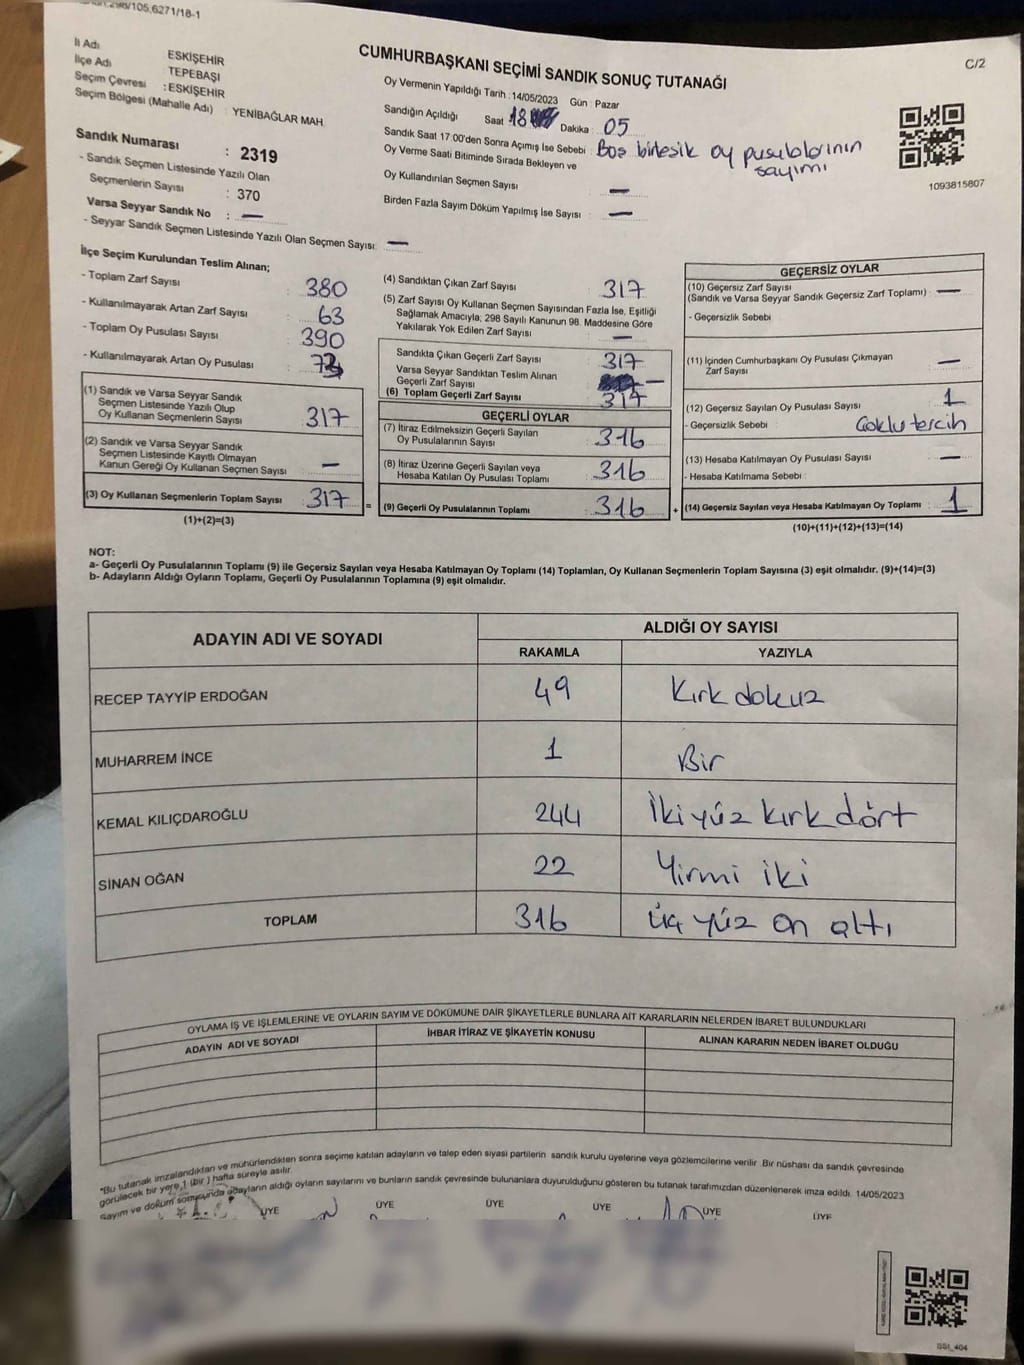 298/105,6271/18-1
C/2
CUMHURBAŞKANI SEÇİMİ SANDIK SONUÇ TUTANAĞI
İl Adı ESKİŞEHİR
İlçe Adı TEPEBAŞI
Seçim Çevresi : ESKİŞEHİR
Seçim Bölgesi (Mahalle Adı) : YENİBAĞLAR MAH.
Sandık Numarası : 2319
- Sandık Seçmen Listesinde Yazılı Olan
Seçmenlerin Sayısı : 370
Varsa Seyyar Sandık No : —
- Seyyar Sandık Seçmen Listesinde Yazılı Olan Seçmen Sayısı: —
Oy Vermenin Yapıldığı Tarih : 14/05/2023 Gün : Pazar
Sandığın Açıldığı Saat 18 Dakika : 05
Sandık Saat 17:00'den Sonra Açımış İse Sebebi : Boş birleşik oy pusulalarının
sayımı
Oy Verme Saati Bitiminde Sırada Bekleyen ve
Oy Kullandırılan Seçmen Sayısı : —
Birden Fazla Sayım Döküm Yapılmış İse Sayısı : —
1093815807
İlçe Seçim Kurulundan Teslim Alınan;
- Toplam Zarf Sayısı : 380
- Kullanılmayarak Artan Zarf Sayısı : 63
- Toplam Oy Pusulası Sayısı : 390
- Kullanılmayarak Artan Oy Pusulası : 73
(1) Sandık ve Varsa Seyyar Sandık
Seçmen Listesinde Yazılı Olup
Oy Kullanan Seçmenlerin Sayısı : 317
(2) Sandık ve Varsa Seyyar Sandık
Seçmen Listesinde Kayıtlı Olmayan
Kanun Gereği Oy Kullanan Seçmen Sayısı : —
(3) Oy Kullanan Seçmenlerin Toplam Sayısı : 317 =
(1)+(2)=(3)
(4) Sandıktan Çıkan Zarf Sayısı : 317
(5) Zarf Sayısı Oy Kullanan Seçmen Sayısından Fazla İse, Eşitliği
Sağlamak Amacıyla; 298 Sayılı Kanunun 98. Maddesine Göre
Yakılarak Yok Edilen Zarf Sayısı : —
Sandıkta Çıkan Geçerli Zarf Sayısı : 317
Varsa Seyyar Sandıktan Teslim Alınan
Geçerli Zarf Sayısı —
(6) Toplam Geçerli Zarf Sayısı : 317
GEÇERLİ OYLAR
(7) İtiraz Edilmeksizin Geçerli Sayılan
Oy Pusulalarının Sayısı : 316
(8) İtiraz Üzerine Geçerli Sayılan veya
Hesaba Katılan Oy Pusulası Toplamı : 316
(9) Geçerli Oy Pusulalarının Toplamı : 316 +
GEÇERSİZ OYLAR
(10) Geçersiz Zarf Sayısı
(Sandık ve Varsa Seyyar Sandık Geçersiz Zarf Toplamı) : —
- Geçersizlik Sebebi :
(11) İçinden Cumhurbaşkanı Oy Pusulası Çıkmayan
Zarf Sayısı : —
(12) Geçersiz Sayılan Oy Pusulası Sayısı : 1
- Geçersizlik Sebebi : Çoklu tercih
(13) Hesaba Katılmayan Oy Pusulası Sayısı : —
- Hesaba Katılmama Sebebi :
(14) Geçersiz Sayılan veya Hesaba Katılmayan Oy Toplamı : 1
(10)+(11)+(12)+(13)=(14)
NOT:
a- Geçerli Oy Pusulalarının Toplamı (9) ile Geçersiz Sayılan veya Hesaba Katılmayan Oy Toplamı (14) Toplamları, Oy Kullanan Seçmenlerin Toplam Sayısına (3) eşit olmalıdır. (9)+(14)=(3)
b- Adayların Aldığı Oyların Toplamı, Geçerli Oy Pusulalarının Toplamına (9) eşit olmalıdır.
ADAYIN ADI VE SOYADI ALDIĞI OY SAYISI
RAKAMLA YAZIYLA
RECEP TAYYİP ERDOĞAN 49 Kırk dokuz
MUHARREM İNCE 1 Bir
KEMAL KILIÇDAROĞLU 244 İki yüz kırk dört
SİNAN OĞAN 22 Yirmi iki
TOPLAM 316 üç yüz on altı
OYLAMA İŞ VE İŞLEMLERİNE VE OYLARIN SAYIM VE DÖKÜMÜNE DAİR ŞİKAYETLERLE BUNLARA AİT KARARLARIN NELERDEN İBARET BULUNDUKLARI
ADAYIN ADI VE SOYADI İHBAR İTİRAZ VE ŞİKAYETİN KONUSU ALINAN KARARIN NEDEN İBARET OLDUĞU
*Bu tutanak imzalandıktan ve mühürlendikten sonra seçime katılan adayların ve talep eden siyasi partilerin sandık kurulu üyelerine veya gözlemcilerine verilir. Bir nüshası da sandık çevresinde
görülecek bir yere 1 (bir) hafta süreyle asılır.
Sayım ve döküm sonucunda adayların aldığı oyların sayılarını ve bunların sandık çevresinde bulunanlara duyurulduğunu gösteren bu tutanak tarafımızdan düzenlenerek imza edildi. 14/05/2023
ÜYE ÜYE ÜYE ÜYE ÜYE ÜYE
SSI_404